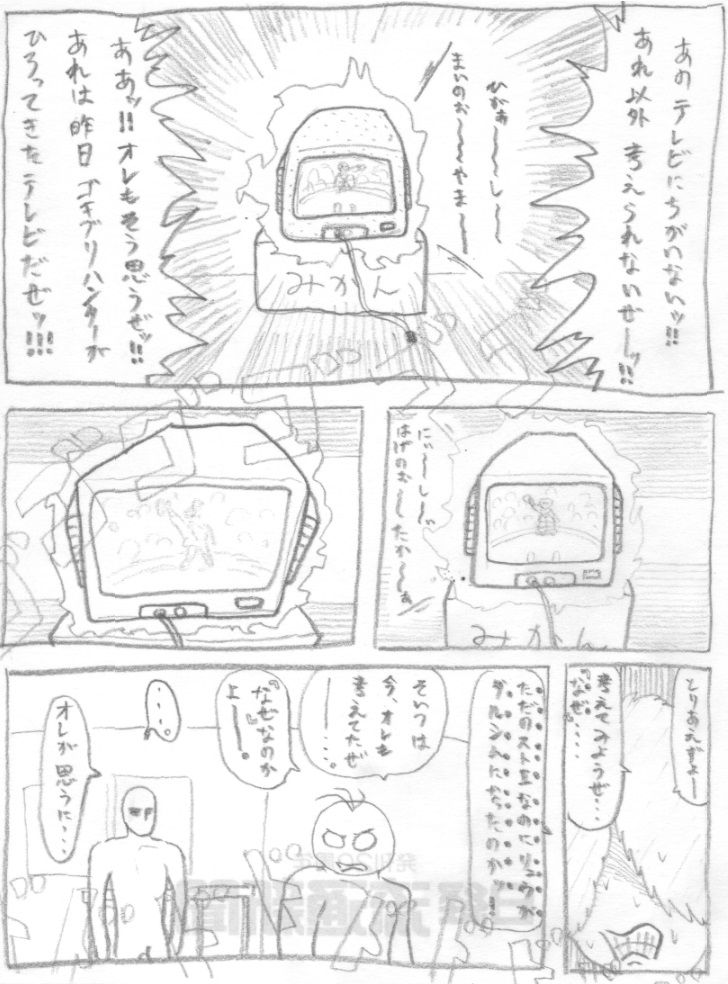 あのテレビにちがいないッ!!
あれ以外 考えられないぜーッ!!
ひがぁ〜〜し〜〜
まいのぉ〜〜〜やま〜〜
みかん
ああッ!!オレもそう思うぜッ!!
あれは昨日 ゴキブリハンターが
ひろってきたテレビだぜッ!!!
にぃ〜し〜
はげのお〜たか〜ぁ
みかん
とりあえずよー
考えてみようぜ…
『なぜ』…
ただのストⅡなのにリュウが
ダルシムにかったのかッ!!
そいつは
今、オレも
考えてたぜ
…。
『なぜなのか』
よー。
・・・・
オレが思うに…